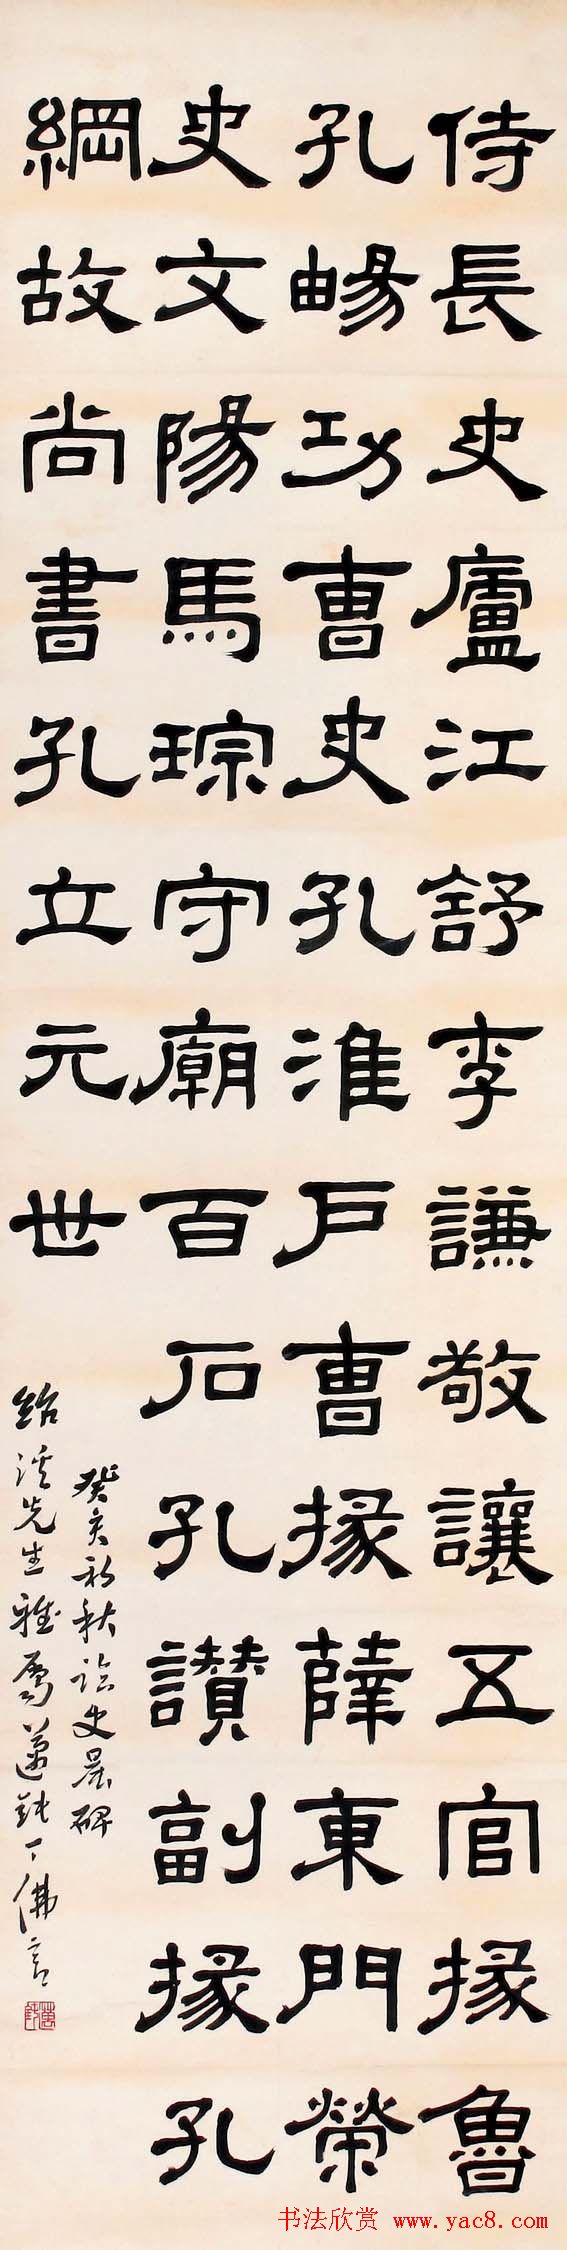 侍長史廬江舒李謙敬讓五官掾魯
孔畼功曹史孔淮戶曹掾薛東門榮
史文陽馬琮守廟百石孔讚副掾孔
綱故尚書孔立元世
癸亥初秋臨史晨碑
紹溪先生雅屬邁鈍丁佛言
书法欣赏 www.yac8.com